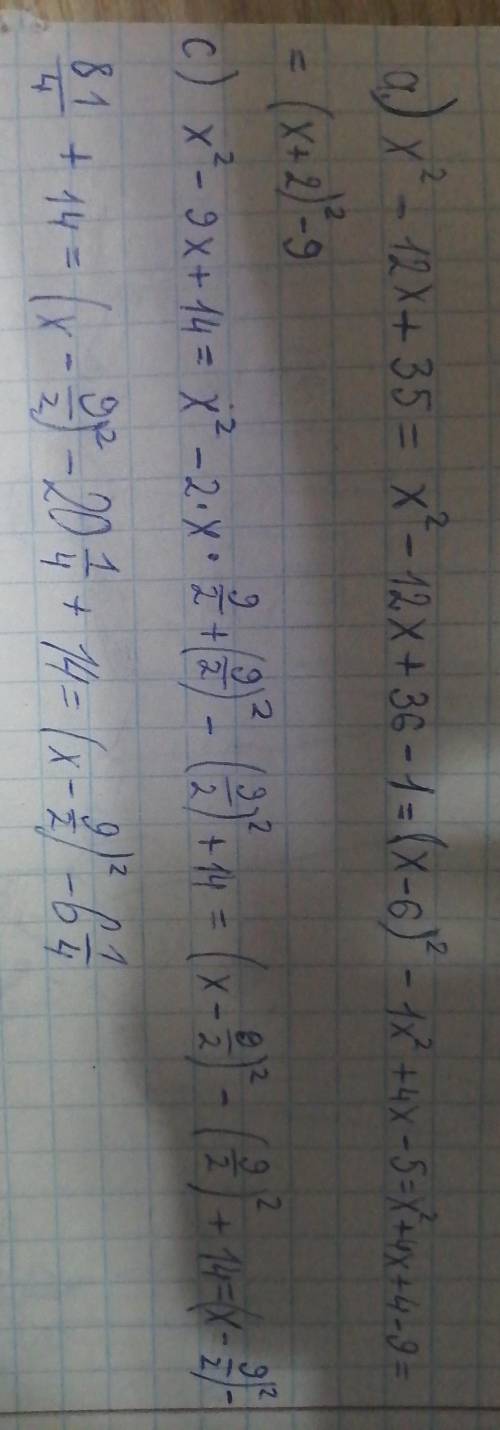 a) x² - 12x + 35 = x² - 12x + 36 - 1 = (x - 6)² - 1x² + 4x - 5 = x² + 4x + 4 - 9 =
= (x + 2)² - 9
c) x² - 9x + 14 = x² - 2·x·9/2 + (9/2)² - (9/2)² + 14 = (x - 9/2)² - (9/2)² + 14 = (x - 9/2)² -
81/4 + 14 = (x - 9/2)² - 20 1/4 + 14 = (x - 9/2)² - 6 1/4